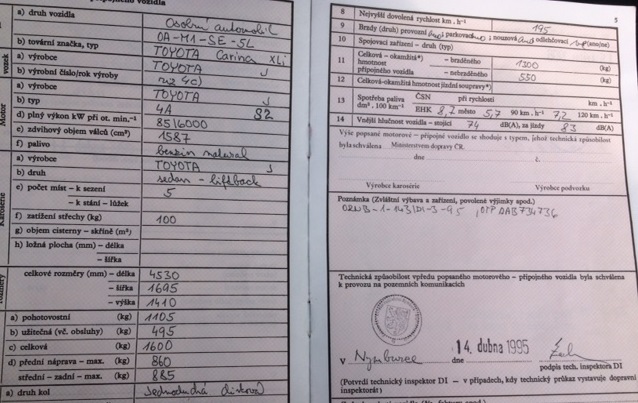 připojeného vozidla
a) druh vozidla Osobní automobil
OA-M1-SE-5L
b) tovární značka, typ TOYOTA Carina XLi
a) výrobce TOYOTA
b) výrobní číslo/rok výroby
Motor
a) výrobce TOYOTA
b) typ 4A
d) plný výkon kW při ot. min.-1 85/6000
e) zdvihový objem válců (cm³) 1587
f) palivo benzin natural
Karoserie
a) výrobce TOYOTA
b) druh sedan - liftback
e) počet míst – k sezení 5
– k stání – lůžek
f) zatížení střechy (kg) 100
g) objem cisterny – skříně (m³)
h) ložná plocha (mm) – délka
– šířka
celkové rozměry (mm) – délka 4530
– šířka 1695
– výška 1410
a) pohotovostní (kg) 1105
b) užitečná (vč. obsluhy) (kg) 495
c) celková (kg) 1600
d) přední náprava – max. (kg) 860
střední – zadní – max. (kg) 885
a) druh kol Jednoduchá disková
5
8 Nejvyšší dovolená rychlost km . h-¹ 195
9 Brzdy (druh) provozní parkovací nouzová odlehčovací (ano/ne)
10 Spojovací zařízení – druh (typ)
11 Celková – okamžitá*) hmotnost přípojného vozidla – brzděného 1300 (kg)
– nebrzděného 550 (kg)
12 Celková-okamžitá hmotnost jízdní soupravy*) (kg)
13 Spotřeba paliva dm³ . 100 km-¹ ČSN při rychlosti km . h-¹
EHK 8,2 město 5,7 90 km . h-¹ 7,2 120 km . h-¹
14 Vnější hlučnost vozidla – stojící 74 dB(A), za jízdy 83 dB(A)
Výše popsané motorové – přípojné vozidlo se shoduje s typem, jehož technická způsobilost
byla schválena Ministerstvem dopravy ČR.
dne č.
Výrobce karosérie Výrobce podvozku
Poznámka (Zvláštní výbava a zařízení, povolené výjimky apod.)
Technická způsobilost vpředu popsaného motorového – přípojného vozidla byla schválena
k provozu na pozemních komunikacích
v Nymburce dne 14. dubna 1995
podpis techn. inspektora DI
(Potvrdí technický inspektor DI – v případech, kdy technický průkaz vystavuje dopravní
inspektorát)